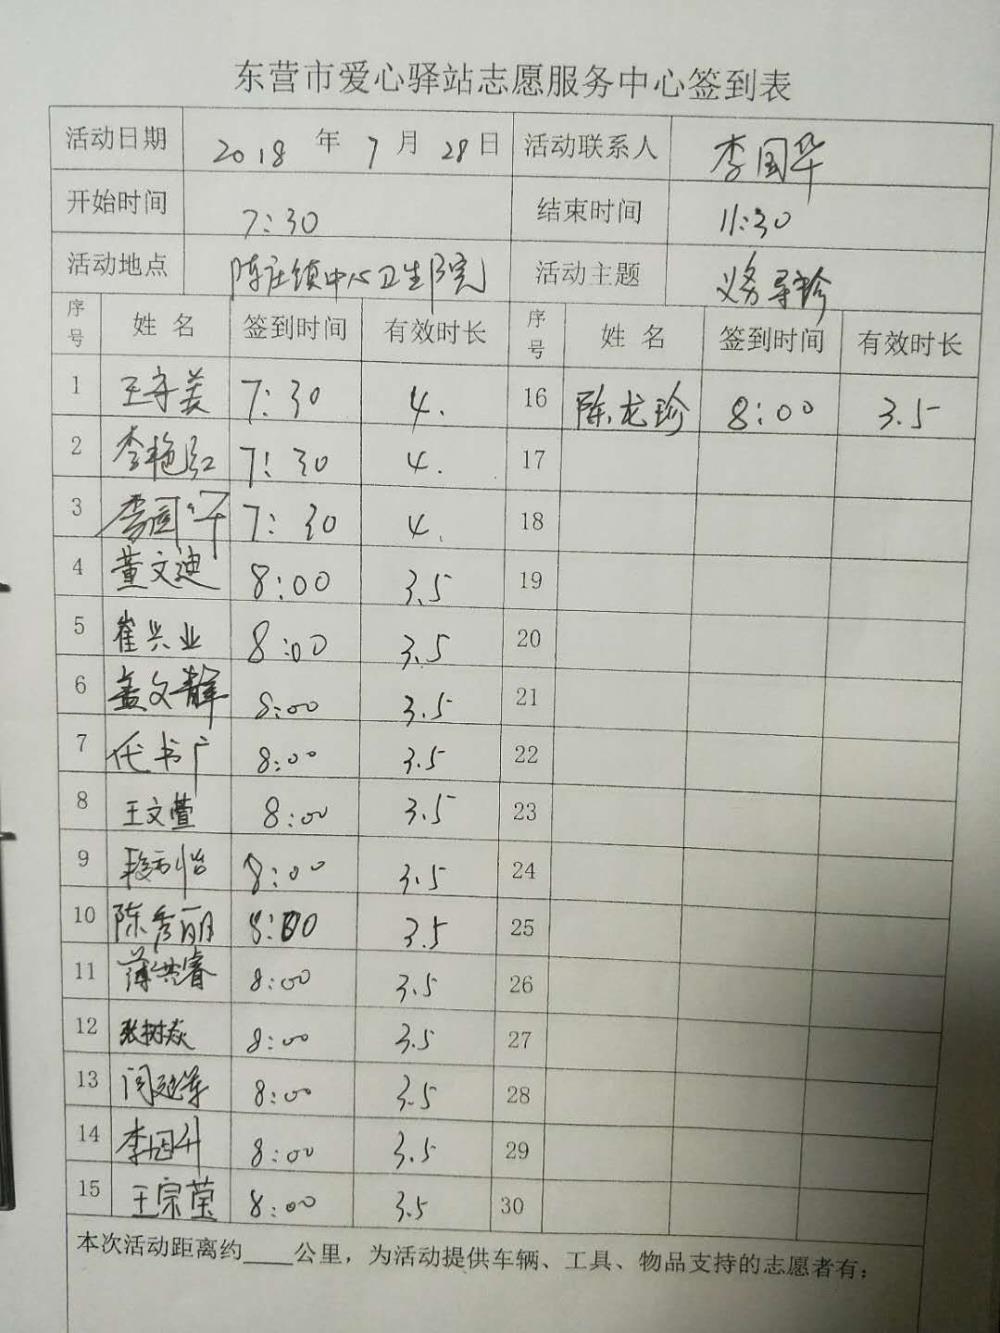 东营市爱心驿站志愿服务中心签到表
活动日期 2018 年 7 月 28 日 活动联系人 李国华
开始时间 7:30 结束时间 11:30
活动地点 陈庄镇中心卫生院 活动主题 义务导诊
序号 姓名 签到时间 有效时长 序号 姓名 签到时间 有效时长
1 王守美 7:30 4. 16 陈龙珍 8:00 3.5
2 李艳红 7:30 4. 17
3 李国华 7:30 4. 18
4 董文迪 8:00 3.5 19
5 崔兴业 8:00 3.5 20
6 孟文静 8:00 3.5 21
7 代书广 8:00 3.5 22
8 王文萱 8:00 3.5 23
9 8:00 3.5 24
10 陈秀丽 8:00 3.5 25
11 薄洪睿 8:00 3.5 26
12 张树焱 8:00 3.5 27
13 闫延军 8:00 3.5 28
14 李国升 8:00 3.5 29
15 王宗莹 8:00 3.5 30
本次活动距离约____公里，为活动提供车辆、工具、物品支持的志愿者有：